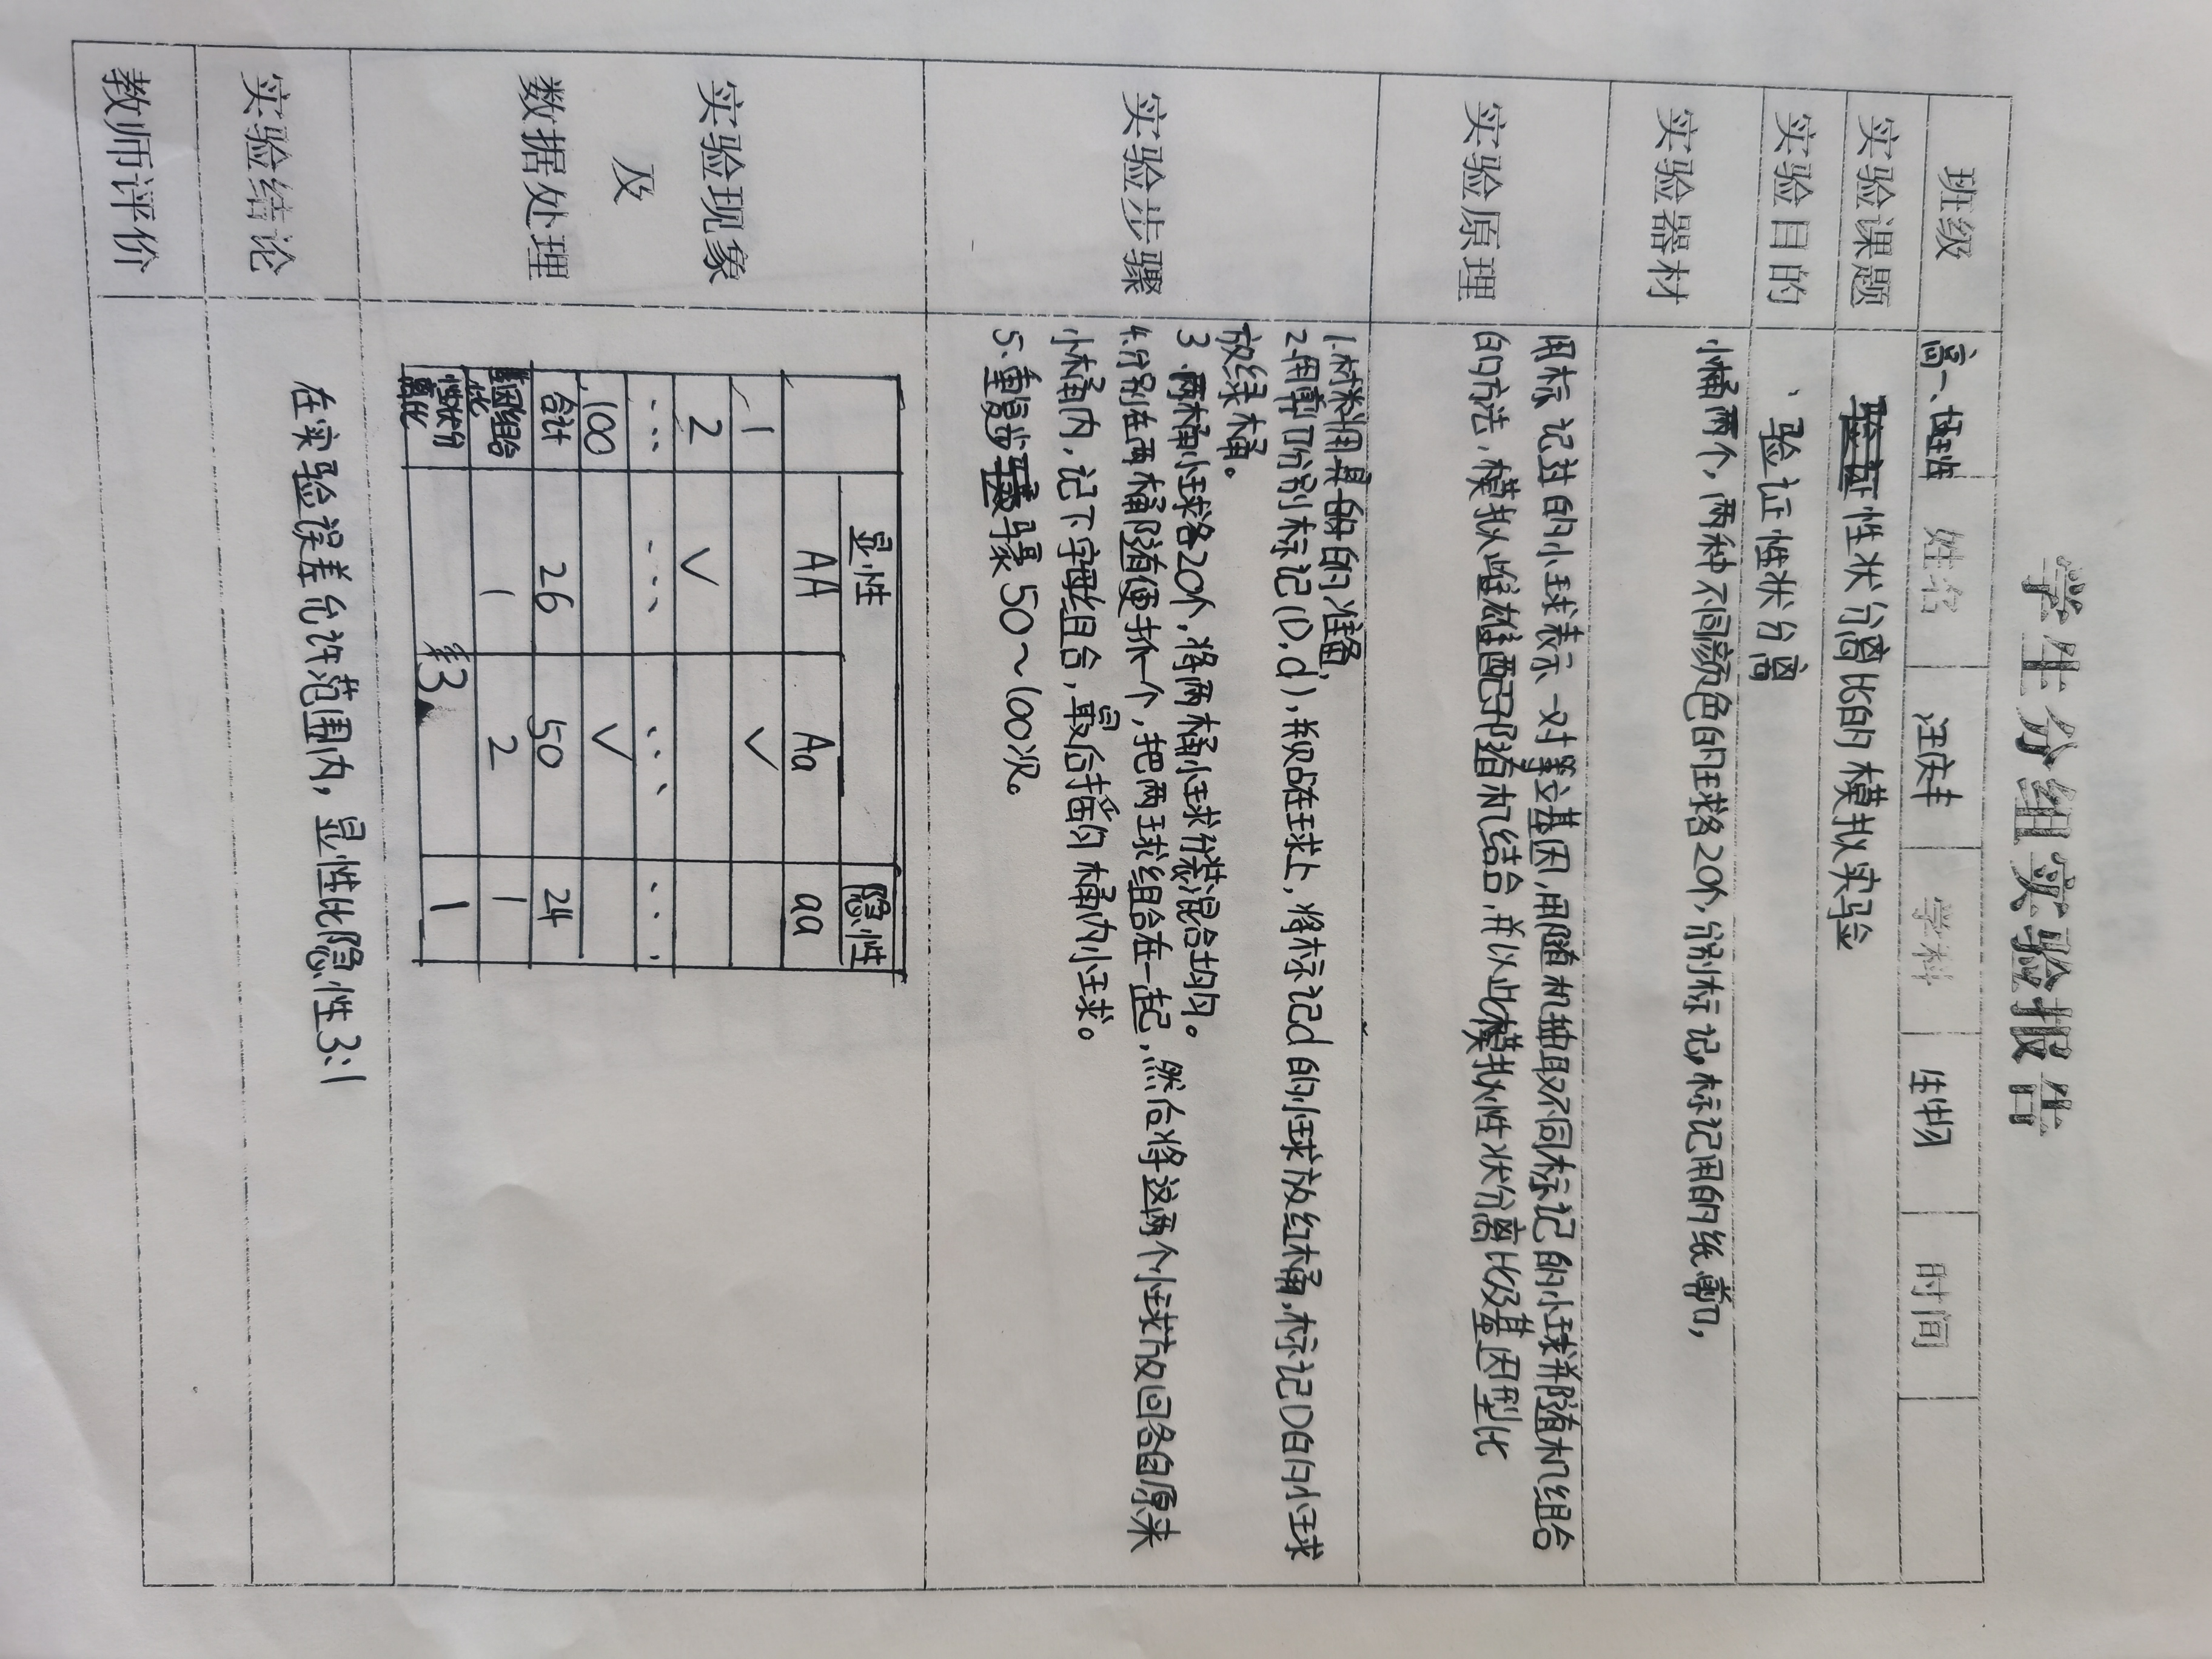 学生分组实验报告
班级 高一、 姓名 学科 生物 时间
实验课题 性状分离比的模拟实验
实验目的 、验证性状分离
实验器材 小桶两个,两种不同颜色的球各20个,分别标记,标记用的纸,剪刀,
实验原理 用标记过的小球表示一对等位基因,用随机抽取不同标记的小球并随机组合
的方法,模拟雌雄配子随机结合,并以此模拟性状分离比及基因型比
实验步骤 1.材料用具的准备
2.用剪刀分别标记(D,d),并贴在球上,将标记d的小球放红桶,标记D的小球
放绿桶。
3、两桶小球各20个,将两桶小球分装混合均匀。
4.分别在两桶随便抓一个,把两球组合在一起,然后将这两个小球放回各自原来
小桶内,记下字母组合,最后摇匀桶内小球。
5、重复步骤50~100次。
实验现象
及
数据处理
显性 隐性
AA Aa aa
1 ✓
2 ✓
⋮ ⋮ ⋮ ⋮
100 ✓
合计 26 50 24
基因组合比 1 2 1
性状分离比 3 1
实验结论 在实验误差允许范围内,显性比隐性3:1
教师评价